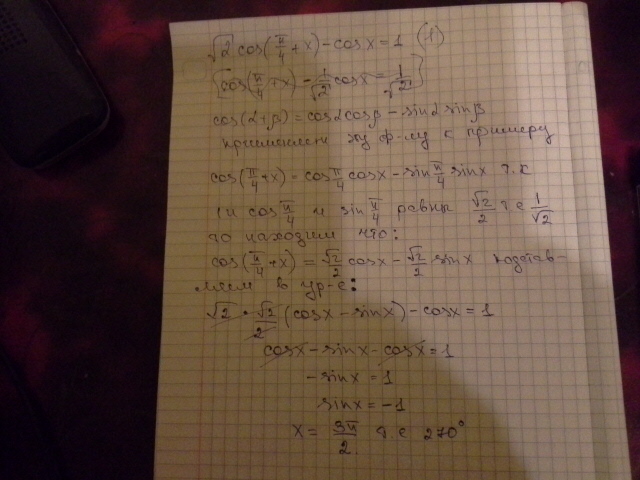 √2 cos(π/4 + x) - cos x = 1 (1)
{cos(π/4 + x) - 1/√2 cos x = 1/√2}
cos(α+β) = cosα cosβ - sinα sinβ
применяем эту ф-лу к примеру
cos(π/4 + x) = cos π/4 cos x - sin π/4 sin x т.к
cos π/4 и sin π/4 равны √2/2 т.е 1/√2
то находим что:
cos(π/4 + x) = √2/2 cos x - √2/2 sin x подстав-
ляем в ур-е:
√2 · √2/2 (cos x - sin x) - cos x = 1
cos x - sin x - cos x = 1
- sin x = 1
sin x = -1
x = 3π/2 т.е 270°